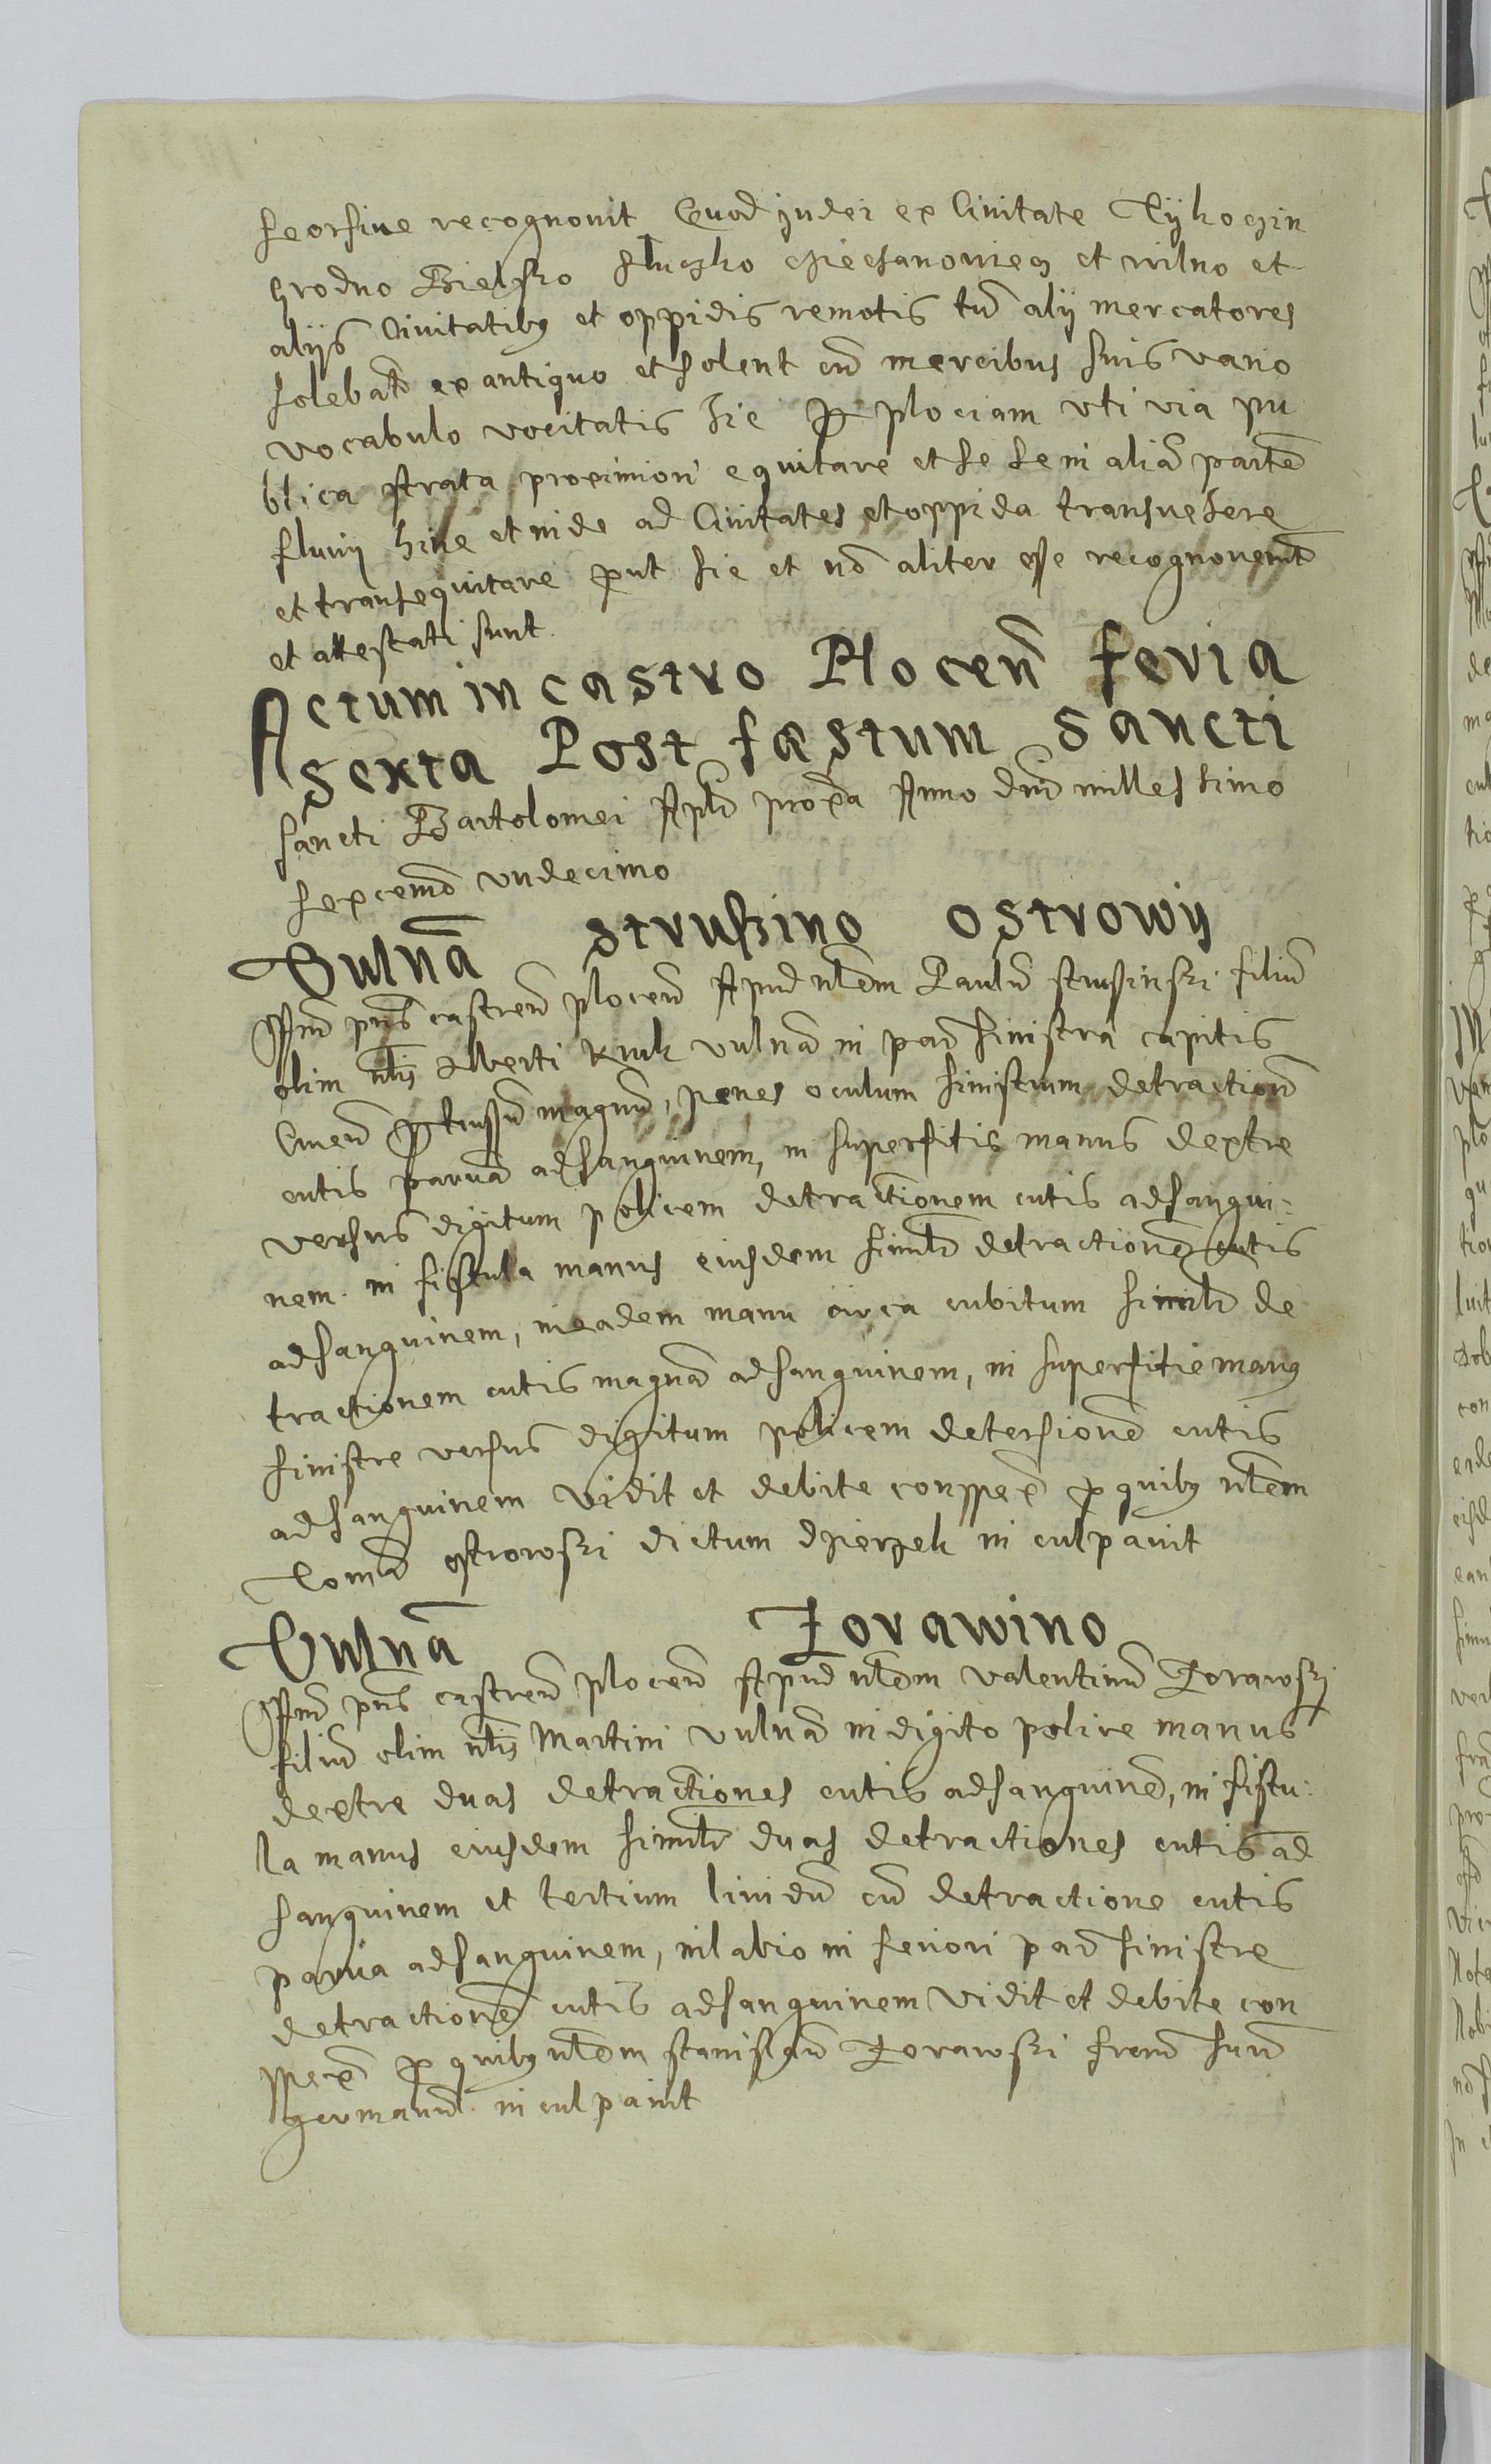 seorsiue recognouit Quod judei ex Ciuitate Tykoczin
Grodno Bielsko Sluczko Cziechanowiecz et wilno et
alijs Ciuitatibꝫ et oppidis remotis tũ alij mercatores
solebãt ex antiquo et solent cũ mercibus suis vario
vocabulo vocitatis hic ꝑ plociam vti via pu
blica strata proximiori equitare et se se in aliã partẽ
fluuij hinc et inde ad Ciuitates et oppida transuehere
et transequitare ꝓut sic et nõ aliter esse recognouerũt
et attestati sunt.
Actum in castro Plocen̄ feria
sexta Post fæstum Sancti
sancti Bartolomei Apl̃i proxĩa Anno dñi millessimo
sexcemõ vndecimo
Vulnã Strußino Ostrowy
pñs castren̄ plocen̄ Apud nlẽm Paulũ strusinski filiũ
olim nlis Alberti Kruk vulnã in parte sinistra capitis
Cruen̄ magnũ, penes oculum sinistrum detractionẽ
cutis paruã ad sanguinem, in superfitie manus dextre
versus digitum policem detractionem cutis ad sangui:
nem. in fistula manus eiusdem similr̃ detractionẽ cutis
ad sanguinem, in eadem manu circa cubitum similr̃ de
tractionem cutis magnã ad sanguinem, in superfitie manꝫ
sinistre versus digitum policem detersionẽ cutis
ad sanguinem vidit et debite conspex̃ ꝓ quibꝫ nlẽm
Tomã ostrowski dictum dzierzek in culpauit
Vulnã Zorawino
pñs castren̄ plocen̄ Apud nlẽm valentinũ Zorawski
filiũ olim nlis Martini vulnã in digito police manus
dextre duas detractiones cutis ad sanguinẽ, in fistu:
la manus eiusdem similr̃ duas detractiones cutis ad
sanguinem et tertium liuidũ cũ detractione cutis
parua ad sanguinem, in labio in feriori parte sinistre
detractionẽ cutis ad sanguinem vidit et debite con
spex̃ ꝓ quibꝫ nlẽm stanislaũ Zorawski frẽm suũ
germanũ. in culpauit